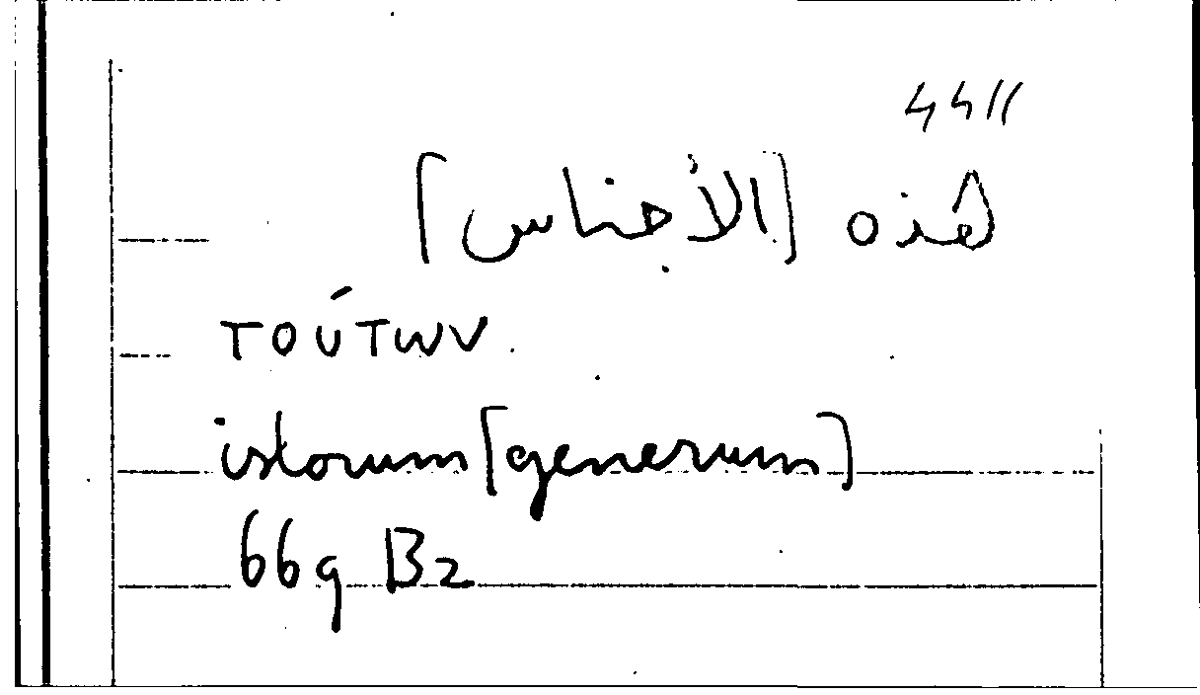 4411
هذه [الأجناس]
τούτων
istorum [generum]
669 B2